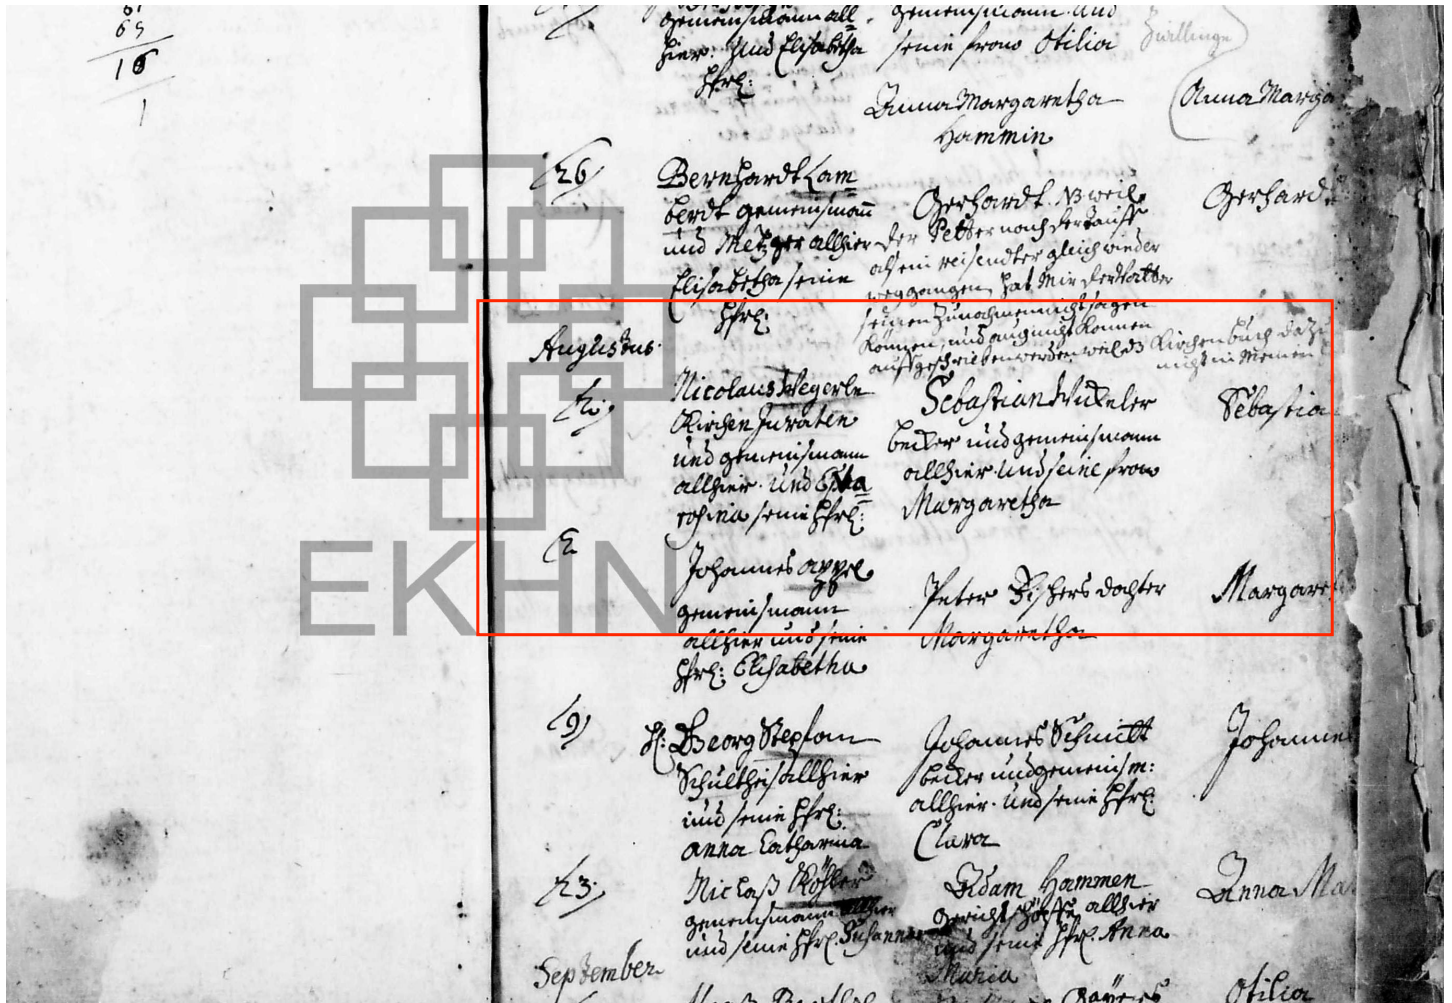 65
16
1
gemeinsmann all
hier. und Elisabetha
hfrl:
gemeinsmann und
seine fraw Otilia
Zwillinge
Anna Margaretha
Hammin
Anna Marga
26
Bernhardt Lam
berdt gemeinsmann
und Metzger allhier
Elisabetha seine
hfrl:
Gerhardt. NB weil
der Petter nach der Tauff
als ein reisendter gleich wieder
weggangen, hat mir der Vatter
seinen Zunahmen nicht sagen
können, und auch nicht können
auffgeschrieben werden weil dz Kirchenbuch dazu
nicht in meinen
Gerhard
Augustus.
Nicolaus Wegerle
Kirchen Juraten
und gemeinsmann
allhier. und Eva
seine hfrl:
Sebastian Winkeler
becker und gemeinsmann
allhier und seine fraw
Margaretha
Sebastia
Johannes appel
gemeinsmann
allhier und seine
hfrl: Elisabetha
Peter Dochter
Margaretha
Margare
19
H: Georg Stephan
Schultheis allhier
und seine hfrl:
anna Catharina
Johannes Schmitt
becker und gemeinsm:
allhier. und seine hfrl:
Clara
Johanne
23
Niclaß Köhler
gemeinsmann allhier
und seine hfrl. Susanna
Adam Hammen
gerichtschöffe allhier
und seine hfrl. Anna
Maria
Anna Ma
September
Otilia
EKHN